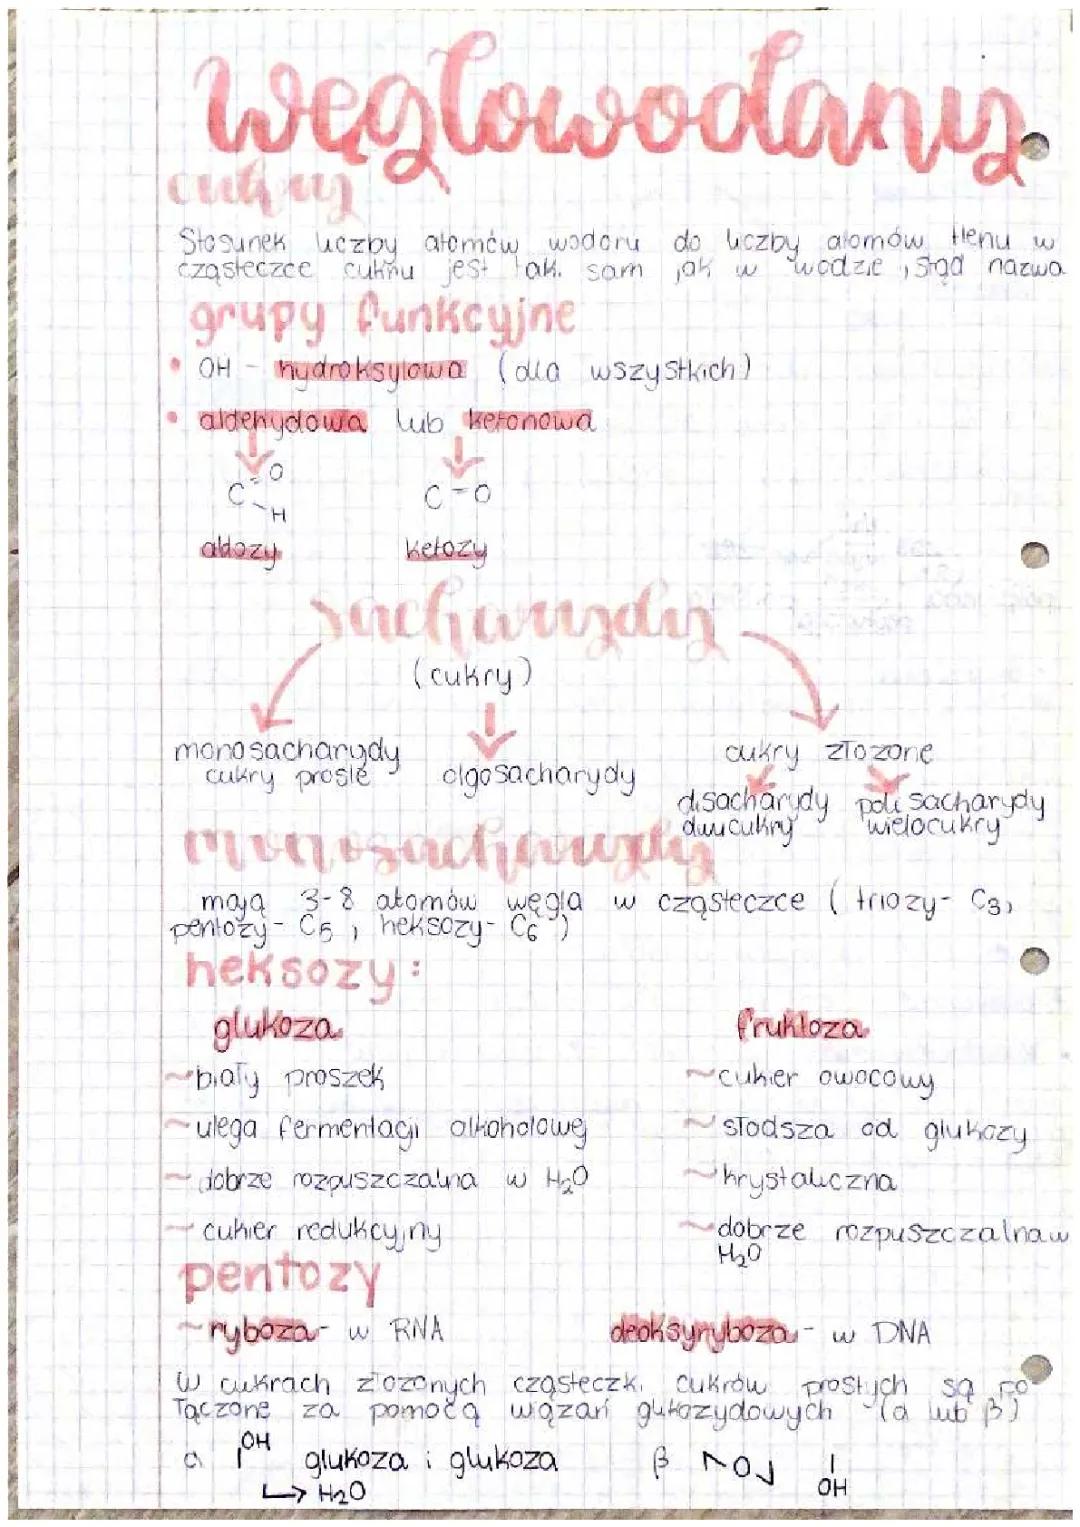 węglowodany
cukry
Stosunek liczby atomów wodoru do liczby atomów tlenu w
cząsteczce cukru jest tak. sam jak w wodzie, stąd nazwa
grupy funkcyjne
• OH - hydroksylowa (dla wszystkich)
• aldehydowa lub ketonowa
C=O C=O
H
aldozy ketozy
sacharydy
(cukry)
monosacharydy cukry złożone
cukry proste olgosacharydy
disacharydy polisacharydy
dwucukry wielocukry
monosacharydy
mają 3-8 atomów węgla w cząsteczce (triozy- C3,
pentozy- C5, heksozy- C6)
heksozy:
glukoza fruktoza
~biały proszek ~cukier owocowy
~ulega fermentacji alkoholowej ~słodsza od glukozy
~dobrze rozpuszczalna w H2O ~krystaliczna
~cukier redukcyjny ~dobrze rozpuszczalna w
H2O
pentozy
~ryboza- w RNA deoksyryboza- w DNA
W cukrach złożonych cząsteczki cukrów prostych są po
łączone za pomocą wiązań glikozydowych (α lub β)
α OH glukoza i glukoza β O OH
↳ H2O